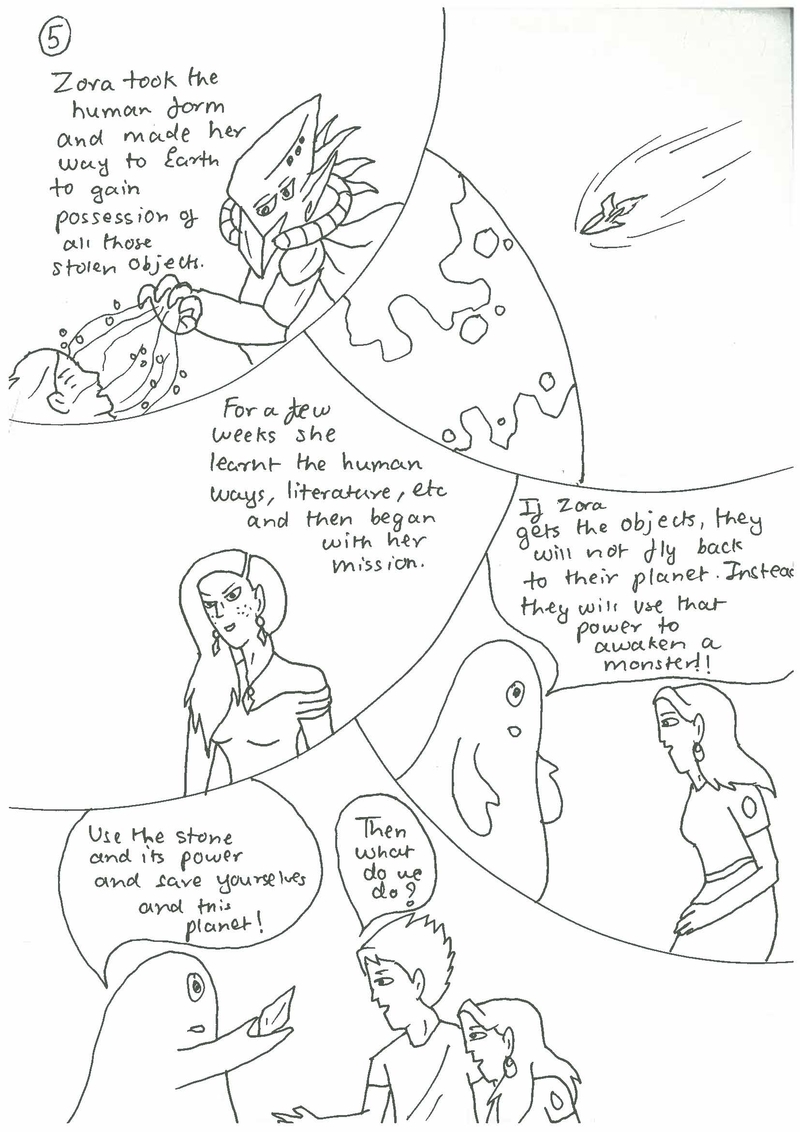 5
Zora took the
human form
and made her
way to Earth
to gain
possession of
all those
stolen objects.
For a few
weeks she
learnt the human
ways, literature, etc
and then began
with her
mission.
If Zora
gets the objects, they
will not fly back
to their planet. Instead
they will use that
power to
awaken a
monster!!
Use the stone
and its power
and save yourselves
and this
planet!
Then
what
do we
do?